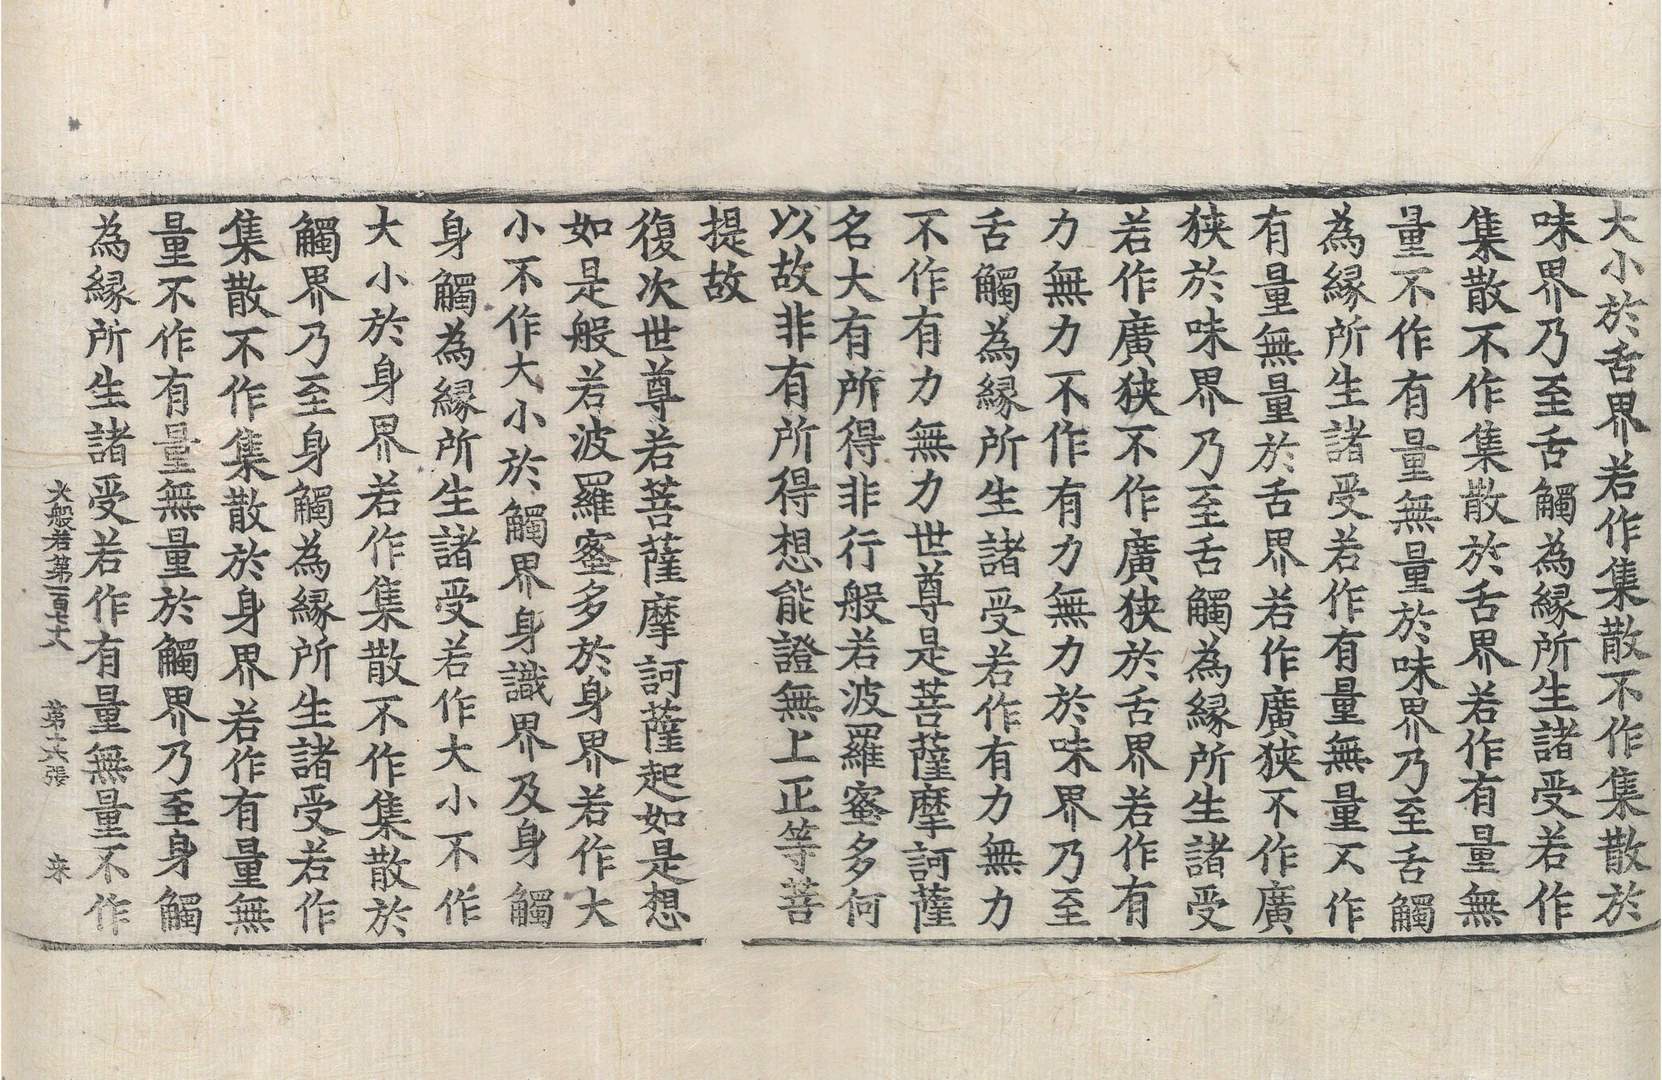 大小於舌界若作集散不作集散於
味界乃至舌觸為縁所生諸受若作
集散不作集散於舌界若作有量無
量不作有量無量於味界乃至舌觸
為縁所生諸受若作有量無量不作
有量無量於舌界若作廣狹不作廣
狹於味界乃至舌觸為縁所生諸受
若作廣狹不作廣狹於舌界若作有
力無力不作有力無力於味界乃至
舌觸為縁所生諸受若作有力無力
不作有力無力世尊是菩薩摩訶薩
名大有所得非行般若波羅蜜多何
以故非有所得想能證無上正等菩
提故
復次世尊若菩薩摩訶薩起如是想
如是般若波羅蜜多於身界若作大
小不作大小於觸界身識界及身觸
身觸為縁所生諸受若作大小不作
大小於身界若作集散不作集散於
觸界乃至身觸為縁所生諸受若作
集散不作集散於身界若作有量無
量不作有量無量於觸界乃至身觸
為縁所生諸受若作有量無量不作
大般若第一百七十六 第十六張 来